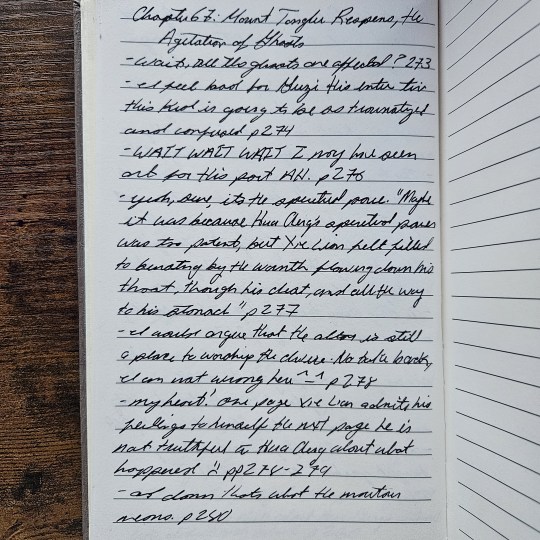 Chapter 67: Mount Tonglu Reopens, the
Agitation of Ghosts
- Wait, all the ghosts are affected? p 273
- I feel bad for Guzi this entire time
this kid is going to be so traumatized
and confused p 274
- WAIT WAIT WAIT I may have seen
art for this part AH. p 276
- yeah, sure, its the spiritual power. "Maybe
it was because Hua Cheng's spiritual power
was too potent, but Xie Lian felt filled
to bursting by the warmth flowing down his
throat, through his chest, and all the way
to his stomach" p 277
- I would argue that the altar is still
a place to worship the divine. No take backs,
I am not wrong here ^-^ p 278
- my heart! one page Xie Lian admits his
feelings to himself the next page he is
not truthful to Hua Cheng about what
happened :( pp 278-279
- oh damn thats what the mountain
means. p 280